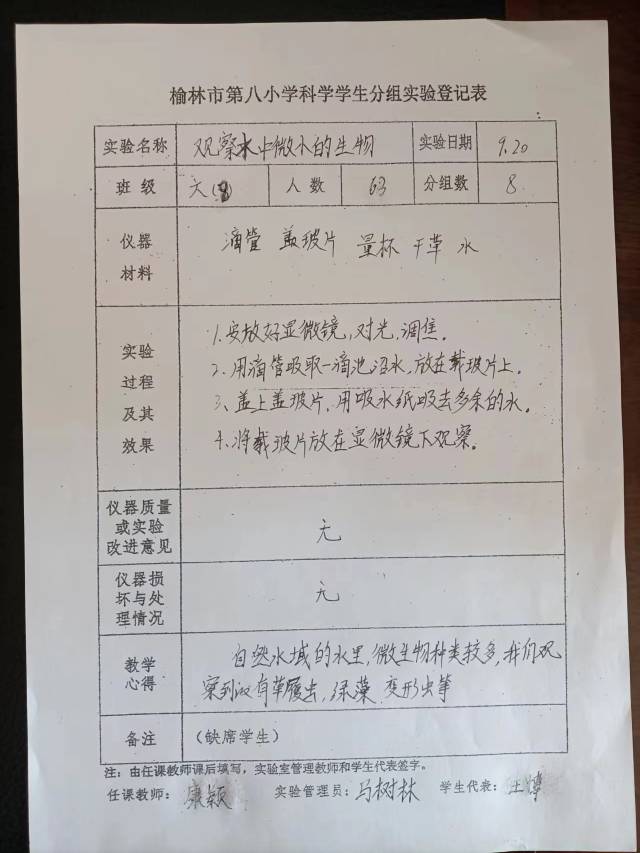 榆林市第八小学科学学生分组实验登记表
实验名称 观察水中微小的生物 实验日期 9.20
班级 六(8) 人数 63 分组数 8
仪器材料 滴管 盖玻片 量杯 干草 水
实验过程及其效果
1.安放好显微镜,对光,调焦。
2.用滴管吸取一滴池沼水,放在载玻片上。
3、盖上盖玻片,用吸水纸吸去多余的水。
4.将载玻片放在显微镜下观察。
仪器质量或实验改进意见 无
仪器损坏与处理情况 无
教学心得
自然水域的水里,微生物种类较多,我们观
察到有草履虫,绿藻 变形虫等
备注 (缺席学生)
注:由任课教师课后填写,实验室管理教师和学生代表签字。
任课教师:康颖 实验管理员:马树林 学生代表:王博